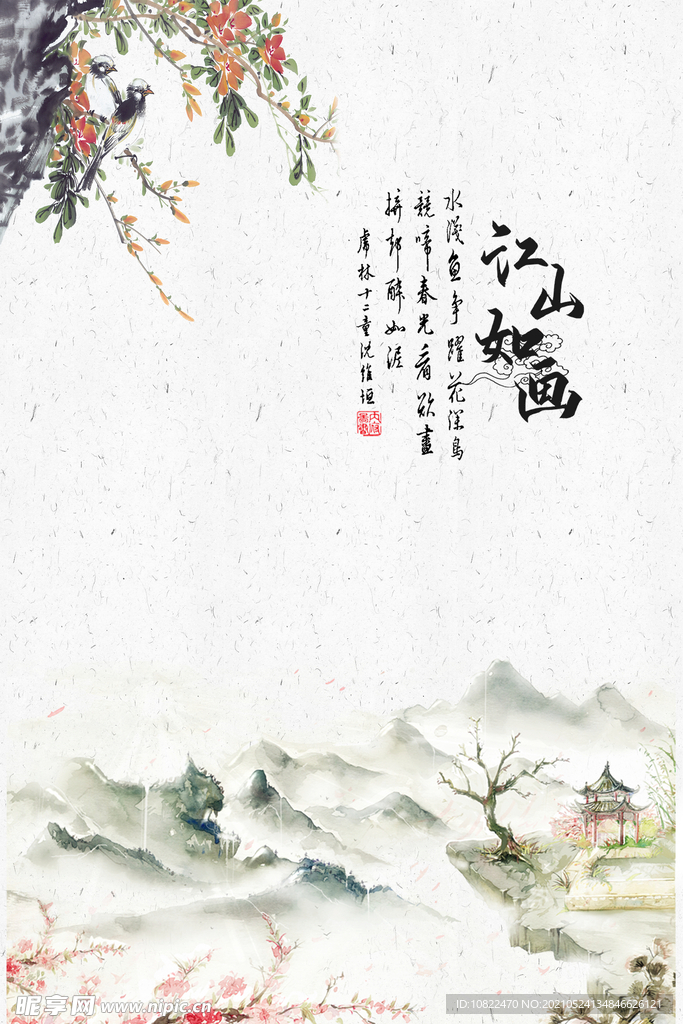 江山如画
水浅鱼争躍花深鸟
競啼春光看欲盡
拚却醉如泥
虎林十二童沈維垣
昵享网 www.nipic.cn
ID:10822470 NO:20210524134846626121